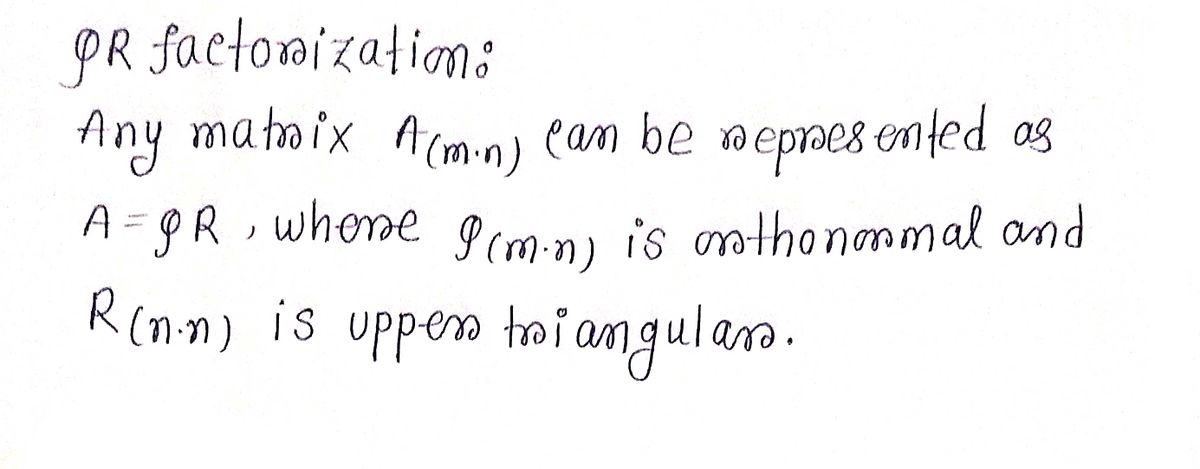 QR factorization:
Any matrix A(m·n) can be represented as
A = QR, where Q(m·n) is orthonormal and
R(n·n) is upper triangular.